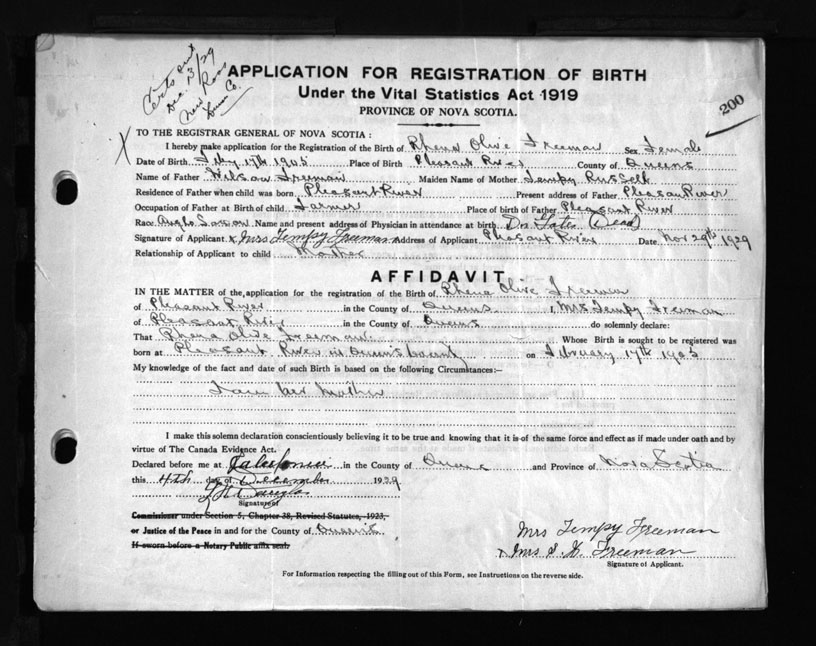 Certs sent
Dec. 13/29
New Ross
Lunn Co.
200
APPLICATION FOR REGISTRATION OF BIRTH
Under the Vital Statistics Act 1919
PROVINCE OF NOVA SCOTIA.
X TO THE REGISTRAR GENERAL OF NOVA SCOTIA :
I hereby make application for the Registration of the Birth of Rhena Olive Freeman Sex Female
Date of Birth Feby 17th 1905 Place of Birth Pleasant River County of Queens
Name of Father Wilson Freeman Maiden Name of Mother Tempy Russell
Residence of Father when child was born Pleasant River Present address of Father Pleasant River
Occupation of Father at Birth of child Farmer Place of birth of Father Pleasant River
Race Anglo Saxon Name and present address of Physician in attendance at birth Dr. (Dead)
Signature of Applicant x Mrs Tempy Freeman Address of Applicant Pleasant River Date Nov 29th 1929
Relationship of Applicant to child Mother
AFFIDAVIT
IN THE MATTER of the, application for the registration of the Birth of Rhena Olive Freeman
of Pleasant River in the County of Queens , Mrs Tempy Freeman
of Pleasant River in the County of Queens do solemnly declare:
That Rhena Olive Freeman Whose Birth is sought to be registered was
born at Pleasant River in Queens County on February 17th 1905
My knowledge of the fact and date of such Birth is based on the following Circumstances:—
I am her mother
I make this solemn declaration conscientiously believing it to be true and knowing that it is of the same force and effect as if made under oath and by
virtue of The Canada Evidence Act.
Declared before me at Caledonia in the County of Queens and Province of Nova Scotia
this 4th day of December 1929
Douglas
Signature of
Commissioner under Section 5, Chapter 38, Revised Statutes, 1923,
or Justice of the Peace in and for the County of Queens
If sworn before a Notary Public affix seal.
Mrs Tempy Freeman
x Mrs Freeman
Signature of Applicant.
For Information respecting the filling out of this Form, see Instructions on the reverse side.